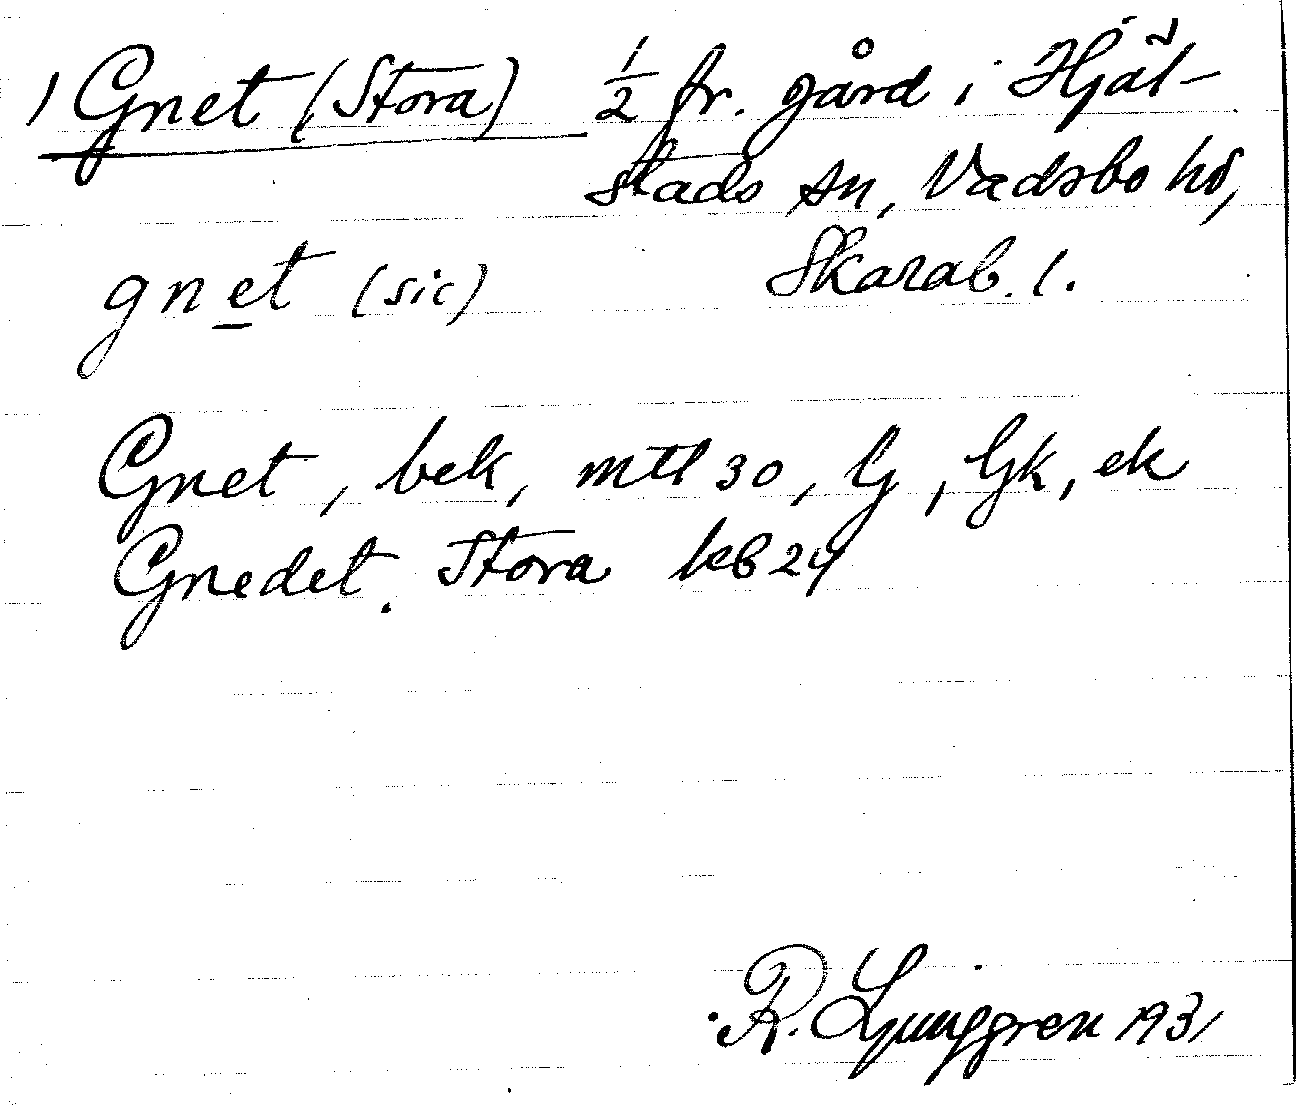 1) Gnet (Stora) 1/2 fr. gård i Hjäl-
stads sn, Vadsbo hd,
gnet (sic) Skarab. l.
Gnet, bek, mtl 30, G, Gk, ek
Gnedet. Stora kb 24
R. Ljunggren 1931